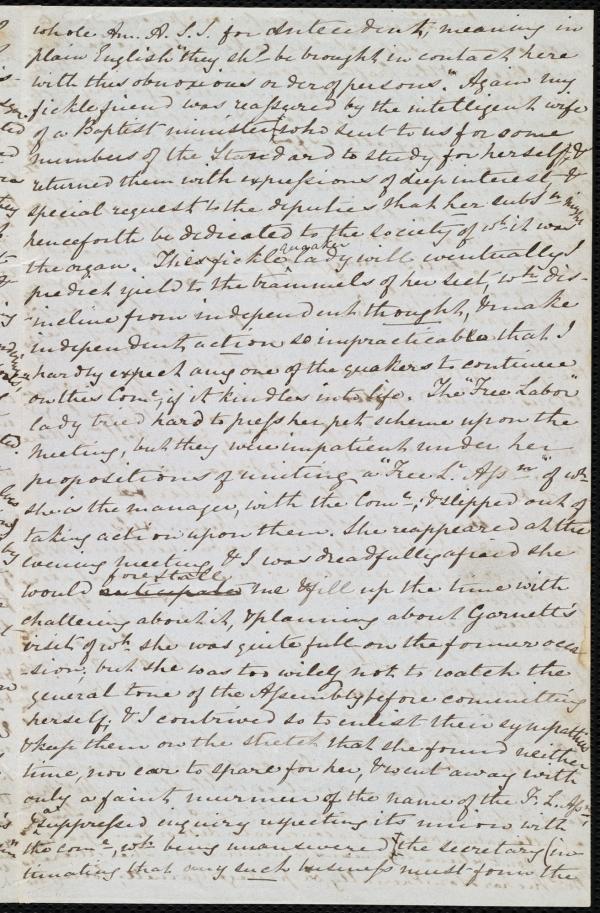 whole Am. A. S. S. for antecedent; meaning in
plain English "they shd be brought in contact here
with this obnoxious order of persons." Again my
fickle friend was reassured by the intelligent wife
of a Baptist minister (who sent to us for some
numbers of the Standard to study for herself, &
returned them with expressions of deep interest, &
special request to the deputies that her subsn might
henceforth be dedicated to the society of wh it was
the organ. This fickle quaker lady will eventually I
predict yield to the trammels of her sect, wh dis-
incline from independent thought, & make
independent action so impracticable that I
hardly expect any one of the quakers to continue
on this Come, if it kindles into life. The "Free Labor"
lady tried hard to press her pet scheme upon the
Meeting, but they were impatient under her
propositions of uniting a "Free L. Assn" of wh
she is the manager, with the Come; & slipped out of
taking action upon them. She reappeared at the
evening meeting & I was dreadfully afraid she
would anticipate forestall me & fill up the time with
chattering about it, & planning about Garnett's
visit of wh she was quite full on the former occa
-sion; but she was too wily not to watch the
general tone of the Assembly before committing
herself; & I contrived so to enlist their sympathies
& keep them on the stretch that she found neither
time, nor ear to spare for her, & went away with
only a faint murmur of the name of the F. L. Assn
& a suppressed inquiry respecting its union with
the come, wh being unanswered by the secretary (in
timating that any such business must form the